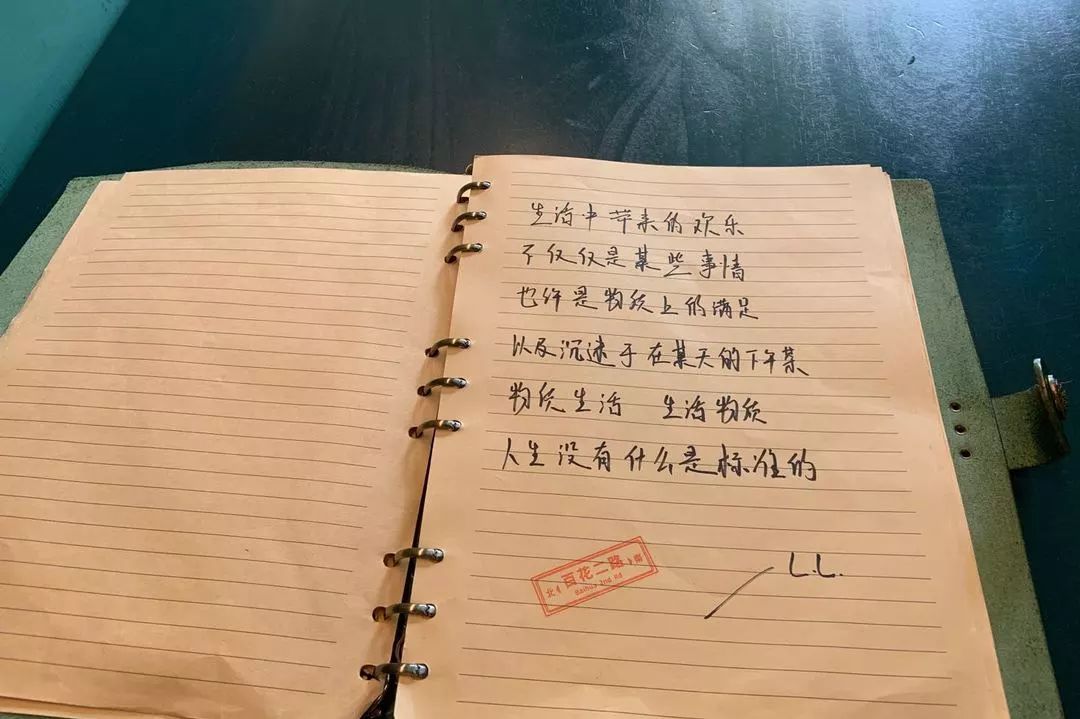 生活中带来的欢乐
不仅仅是某些事情
也许是物质上的满足
以及沉迷于在某天的下午茶
物质生活 生活物质
人生没有什么是标准的
北 百花二路 南
Baihua 2nd Rd
L.L.